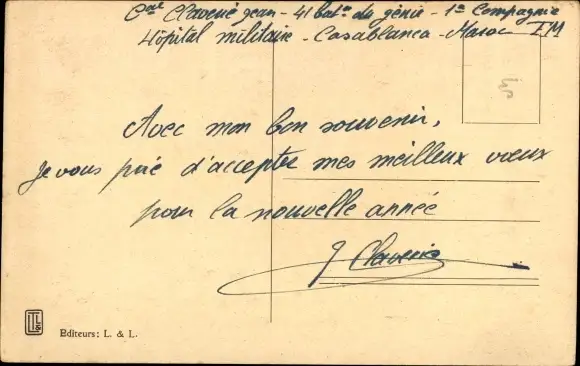 Cal Claverié Jean - 41 baton du génie - 1e Compagnie
Hôpital militaire - Casablanca - Maroc FM
Avec mon bon souvenir,
Je vous prié d'accepter mes meilleux vœux
pour la nouvelle année
J Claverié
Editeurs: L. & L.